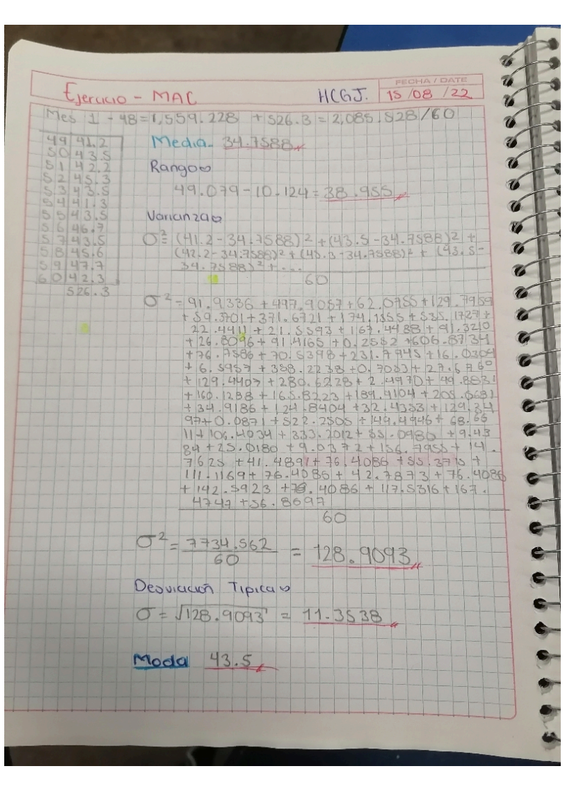 FECHA / DATE
Ejercicio - MAC HCGJ. 15 /08 /22
Mes 1 - 48 = 1,559.228 + 526.3 = 2,085.528/60
49 41.2
50 43.5
51 42.2
52 45.3
53 43.5
54 41.3
55 43.5
56 46.7
57 43.5
58 45.6
59 47.7
60 42.3
526.3
Media 34.7588
Rango
49.079-10.124=38.955
Varianza
σ²= (41.2-34.7588)² +(43.5-34.7588)² +
(42.2-34.7588)² +(45.3-34.7588)² + (43.5-
34.7588)² +...
60
σ² = 91.9336 + 497.9057 + 62.0755 +129.7959
+ 59.5701 + 371.6721 + 174.1355 + 535.1727 +
22.4411 + 21.5593 + 167.4488 + 91.3210
+ 26.8096 + 91.4165 + 0.2552 +606.8734
+ 76.7586 + 70.5398 + 231.7945 + 16.0304
+ 6.5957 + 358.2238 + 0.7053 + 27.6769
+ 129.4407 + 280.6228 + 2.4970 + 49.8831
+ 160.1288 + 165.8223 + 184.4104 + 205.0631
+ 34.9186 + 124.8404 + 32.4353 + 129.34
97 + 0.0871 + 522.2505 + 144.4946 + 68.65
11 + 106.4034 + 333.2012 + 55.0980 + 9.43
89 + 25.0180 + 9.0372 + 156.7955 + 14.
7625 + 41.4891 + 76.4086 + 55.3715 +
111.1169 + 76.4086 + 42.7873 + 76.4086
+ 142.5923 + 76.4086 + 117.5316 + 167.
4747 + 56.8697
60
σ² = 7734.562 = 128.9093
60
Desviación Tipica
σ = √128.9093 = 11.3538
Moda 43.5